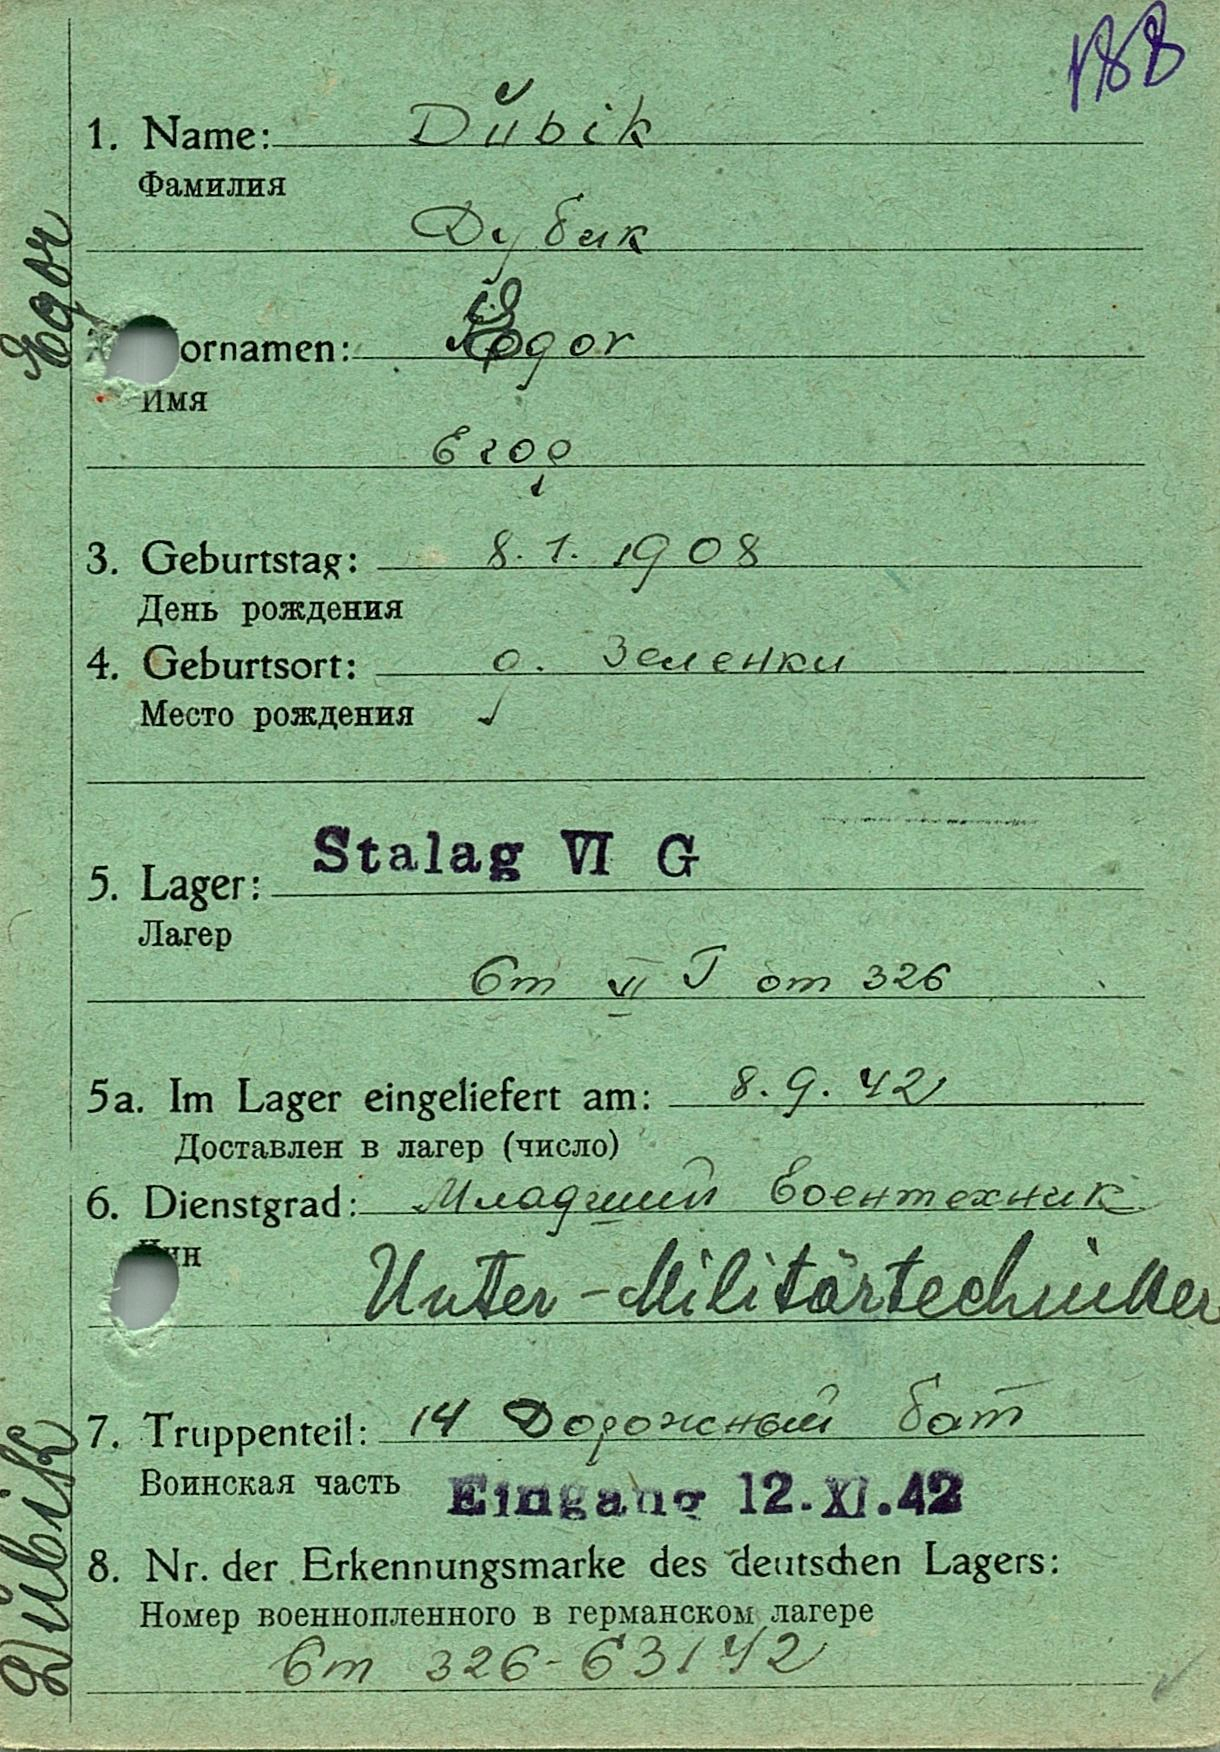 188
1. Name: Dŭbik
Фамилия
Дубик
ornamen: Egor
Имя
Егор
3. Geburtstag: 8. 1. 1908
День рождения
4. Geburtsort: о. Зеленки
Место рождения
Stalag VI G
5. Lager:
Лагер
Ст VI J от 326
5a. Im Lager eingeliefert am: 8. 9. 42
Доставлен в лагер (число)
6. Dienstgrad: Младший Воентехник
Чин
Unter-Militärtechniker
7. Truppenteil: 14 Дорожный бат
Воинская часть
Eingang 12. XI. 42
8. Nr. der Erkennungsmarke des deutschen Lagers:
Номер военнопленного в германском лагере
Ст 326-63142
Dŭbik
Egor